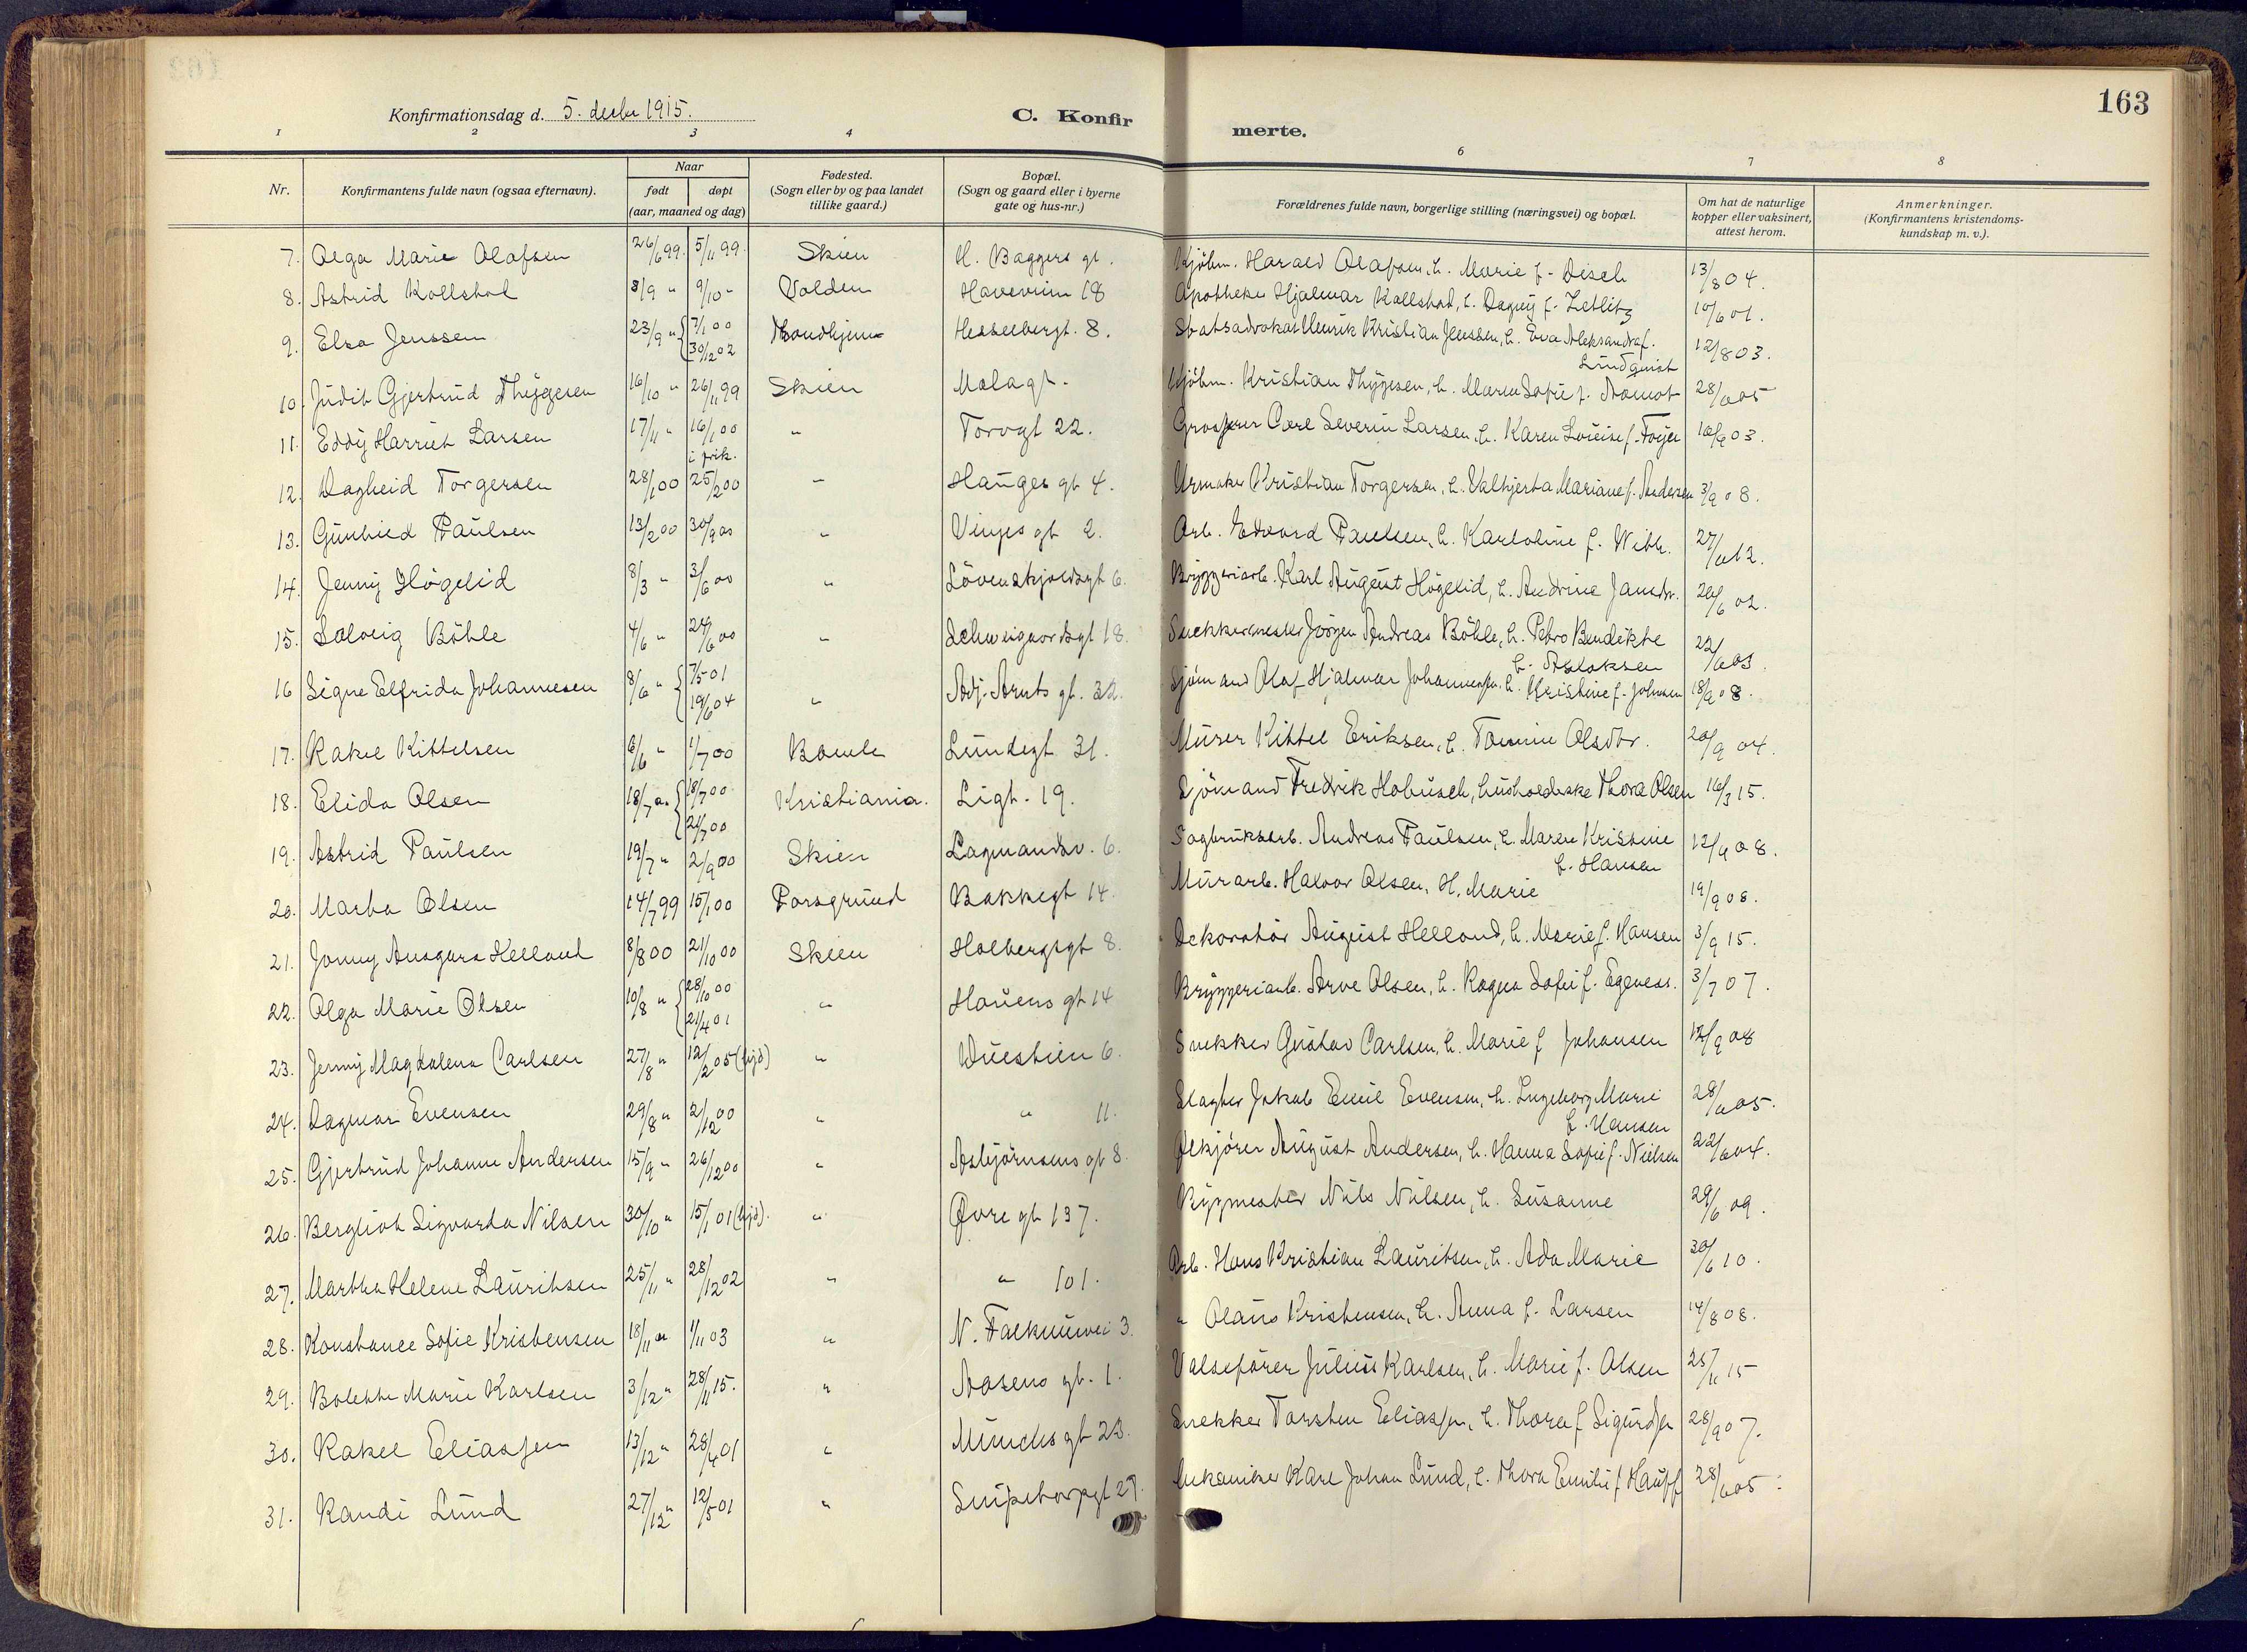 163
Konfirmationsdag d. 5. decbr 1915.
C. Konfirmerte.
1 2 3 4 6 7 8
Nr. | Konfirmantens fulde navn (ogsaa efternavn). | Naar født | døpt (aar, maaned og dag) | Fødested. (Sogn eller by og paa landet tillike gaard.) | Bopæl. (Sogn og gaard eller i byerne gate og hus-nr.) | Forældrenes fulde navn, borgerlige stilling (næringsvei) og bopæl. | Om hat de naturlige kopper eller vaksinert, attest herom. | Anmerkninger. (Konfirmantens kristendomskundskap m. v.).
7. Olga Marie Olafsen 26/6 99. 5/11 99. Skien H. Baggers gt. Kjøbm. Harald Olafsen, h. Marie f. Disch 13/8 04.
8. Astrid Kollstad 8/9 " 9/10 " Volden Haveveien 18 Apotheker Hjalmar Kollstad, h. Dagny f. Zetlitz 10/6 01.
9. Elsa Jenssen 23/9 " { 7/1 00 30/2 02 Trondhjem Hesselbergt. 8. Statsadvokat Henrik Kristian Jenssen, h. Eva Aleksandra f. Lundquist 12/8 03.
10. Judit Gjertrud Thygesen 16/10 " 26/11 99 Skien Molagt. Kjøbm. Kristian Thygesen, h. Maren Sofie f. Aamot 28/6 05
11. Eddy Harriet Larsen 17/11 " 16/1 00 i frik. " Torvgt 22. Grosserer Carl Severin Larsen, h. Karen Lovise f. Foyn 18/9 03.
12. Dagheid Torgersen 28/1 00 25/2 00 " Hauges gt 4. Urmaker Kristian Torgersen, h. Valhjerta Mariane f. Andersen 3/9 08.
13. Gunhild Paulsen 13/2 00 30/9 00 " Vinjes gt 2. Arb. Edvard Paulsen, h. Karloline f. Wibe. 27/11 12.
14. Jenny Høgelid 8/3 " 3/6 00 " Løvenskjoldsgt 6. Bryggeriarb. Karl August Høgelid, h. Andrine Jansdr. 20/6 02.
15. Solveig Bøhle 4/6 " 24/6 00 " Schweigaardsgt 18. Snekkermester Jørgen Andreas Bøhle, h. Petra Bendikte f. Aslaksen 22/6 03.
16 Signe Elfrida Johannesen 8/6 " { 7/5 01 19/6 04 " Adj. Arnts gt. 32. Sjømand Olaf Hjalmar Johannessen, h. Kristine f. Johnsen 18/9 08.
17. Rakel Kittelsen 6/6 " 1/7 00 Bamle Lundegt 31. Murer Kittel Eriksen, h. Tomine Olsdtr. 20/9 04.
18. Elida Olsen 18/7 00 { 18/7 00 21/7 00 Kristiania. Ligt. 19. Sjømand Fredrik Hobusch, husholderske Thora Olsen 16/3 15.
19. Astrid Paulsen 19/7 " 2/9 00 Skien Lagmandsv. 6. Sagbruksarb. Andreas Paulsen, h. Maren Kristine f. Hansen 12/9 08.
20. Marta Olsen 14/7 99 15/1 00 Porsgrund Bakkegt 14. Murarb. Halvor Olsen, H. Marie 19/9 08.
21. Jonny Ansgara Helland 8/8 00 21/10 00 Skien Holbergsgt 8. Dekoratør August Helland, h. Marie f. Hansen 3/9 15.
22. Olga Marie Olsen 10/8 " { 28/10 00 21/4 01 " Havens gt 14 Bryggeriarb. Arve Olsen, h. Ragna Sofie f. Egeness. 3/7 07.
23. Jenny Magdalena Carlsen 27/8 " 12/2 05 (hjd) " Duestien 6. Snekker Gustav Carlsen, h. Marie f Johansen 12/9 08
24. Dagmar Evensen 29/8 " 2/12 00 " " 11. Slagter Jakob Emil Evensen, h. Ingeborg Marie f. Hansen 28/6 05.
25. Gjertrud Johanne Andersen 15/9 " 26/12 00 " Asbjørnsens gt 8. Ølkjører August Andersen, h. Hanna Sofie f. Nielsen 22/6 04.
26. Bergliot Sigvarda Nilsen 30/10 " 15/1 01 (hjd). " Øvre gt 137. Bygmester Nils Nilsen, h. Susanne 29/6 09.
27. Martha Helene Lauritsen 25/11 " 28/12 02 " " 101. Arb. Hans Kristian Lauritsen, h. Ada Marie 30/6 10.
28. Konstance Sofie Kristensen 18/11 00 1/11 03 " N. Falkumvei 3. " Olaus Kristensen, h. Anna f. Larsen 14/8 08.
29. Bolette Marie Karlsen 3/12 " 28/11 15. " Aasens gt. 1. Valsefører Julius Karlsen, h. Marie f. Olsen 25/11 15
30. Rakel Eliassen 13/12 " 28/4 01 " Munchs gt 22. Snekker Torsten Eliassen, h. Thora f Sigurdsen 28/9 07.
31. Randi Lund 27/12 " 12/5 01 " Snipetorpgt 27. Mekaniker Karl Johan Lund, h. Thora Emilie f Hauff 28/6 05.